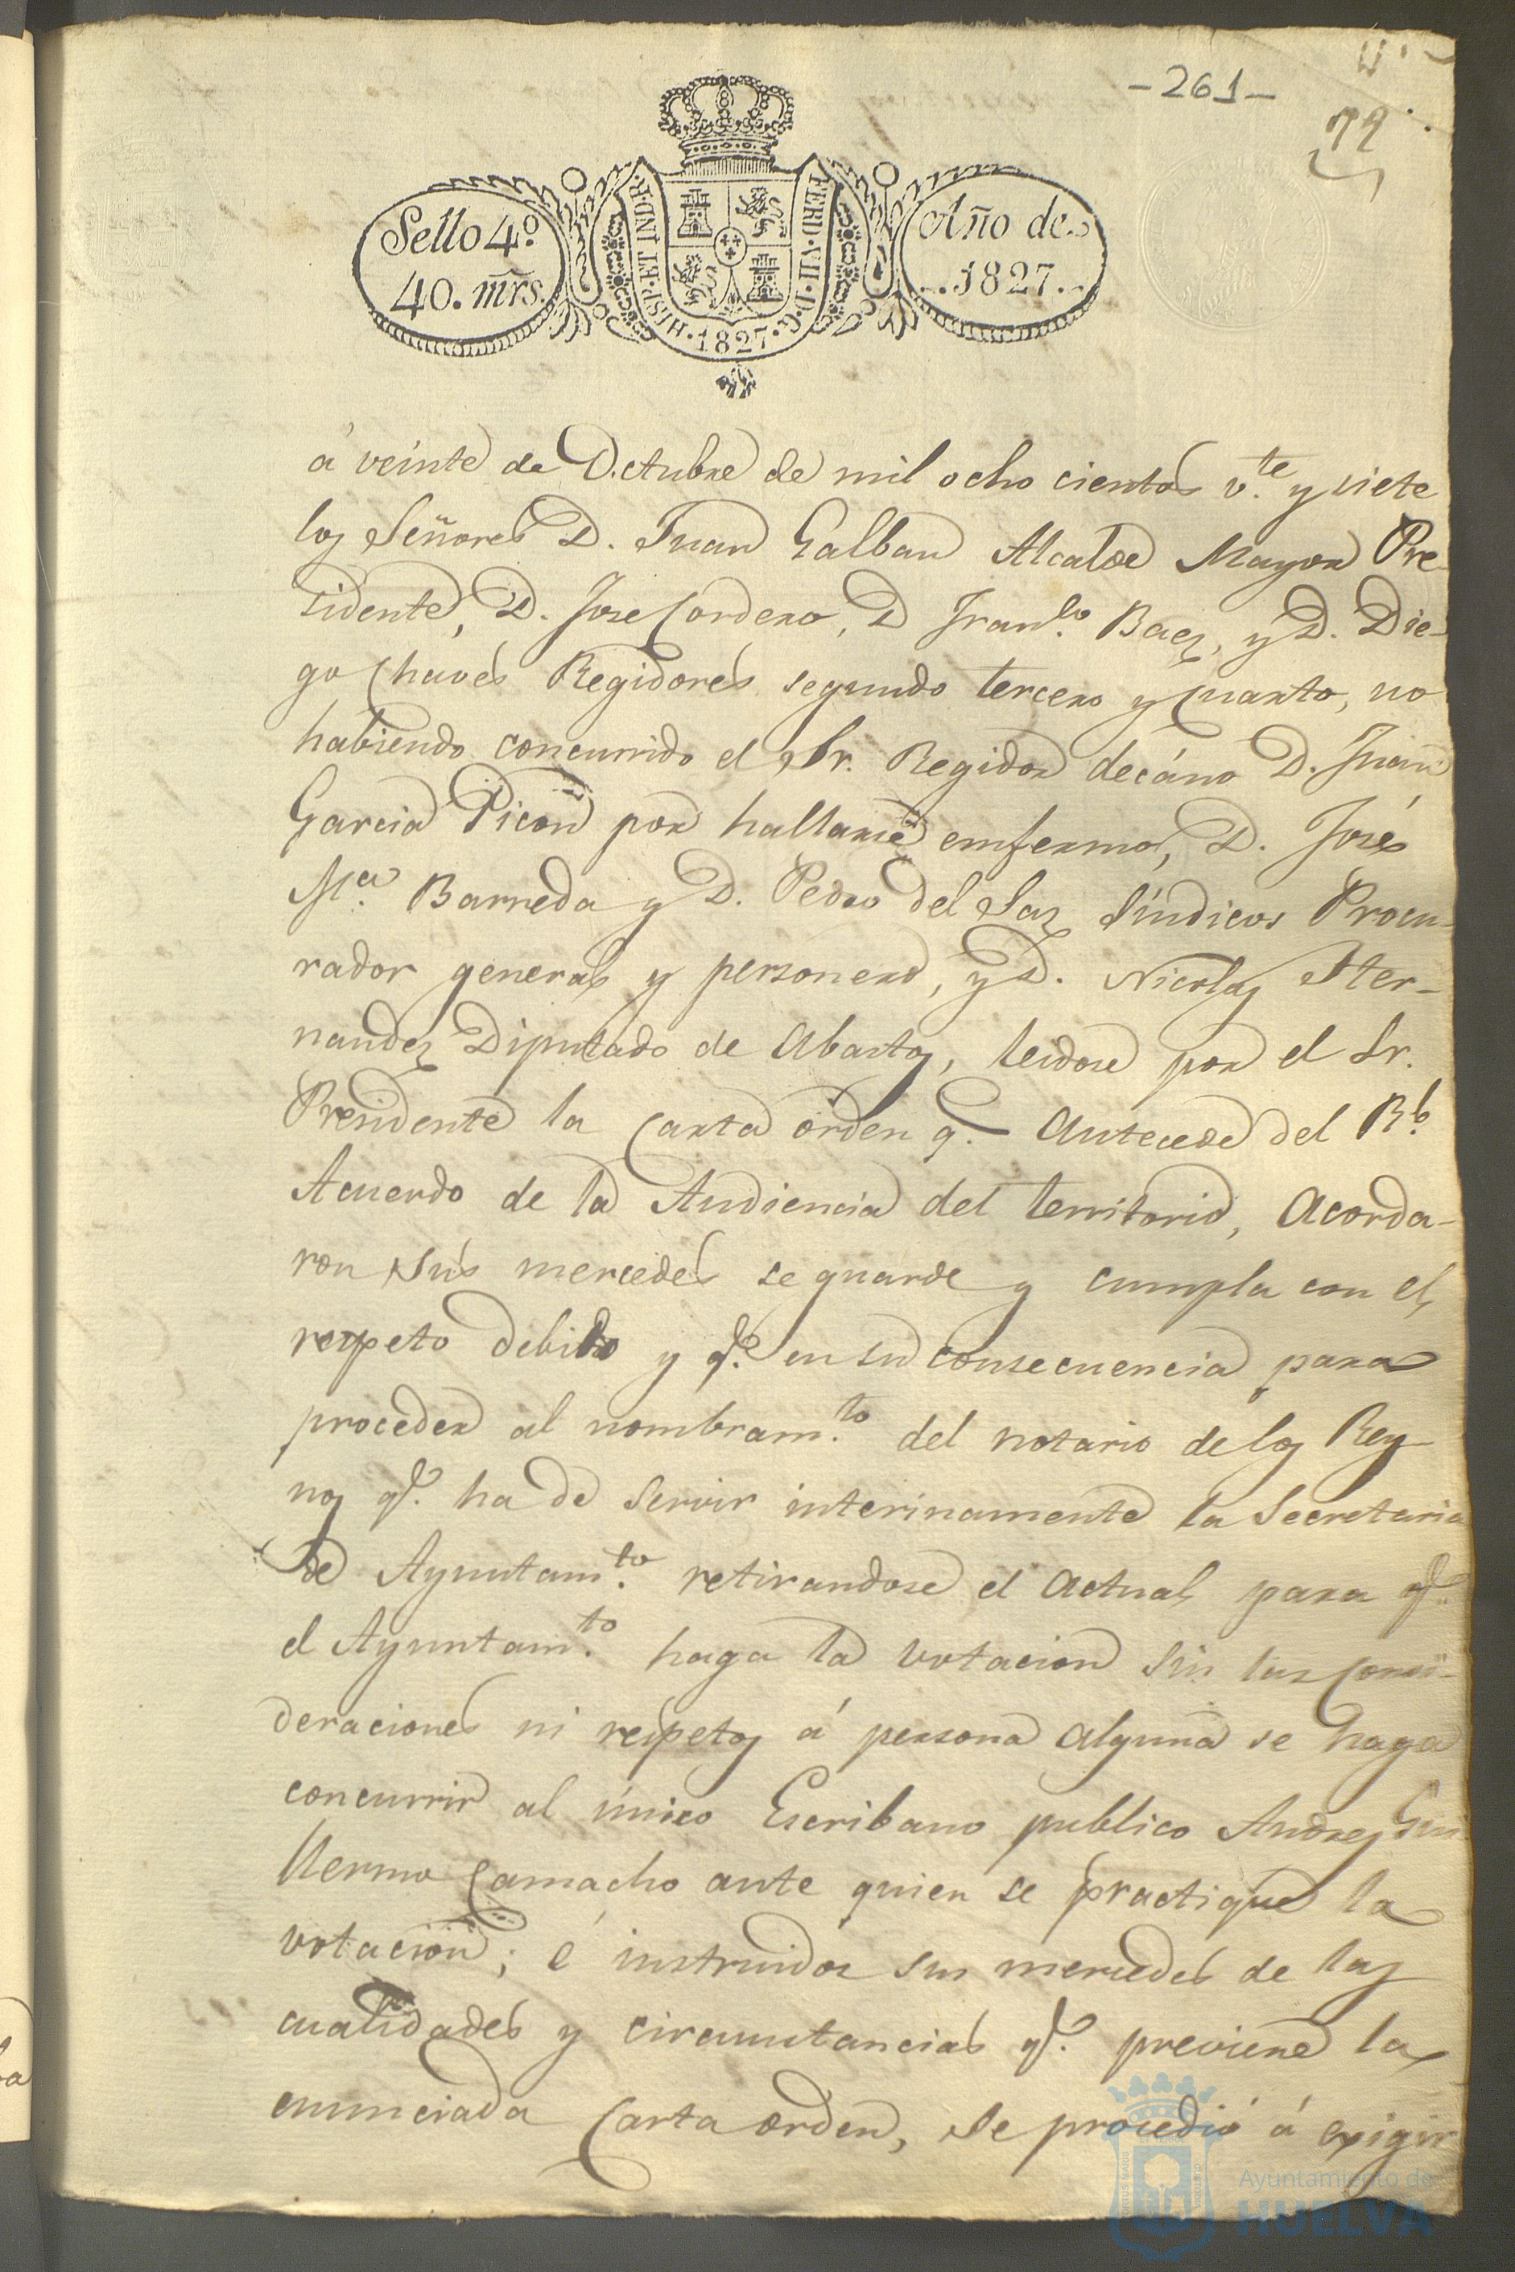 -261-
72
Sello 4º.
40. mrs.
HISP. ET IND. R.
FERD. VII. D. G.
1827
Año de
1827.
á veinte de Octubre de mil ocho cientos v.te y siete
los Señores D. Juan Galban Alcalde Mayor Pre-
sidente, D. Jose Cordero, D Fran.co Baez, y D. Die-
go Chaves Regidores segundo tercero y cuarto, no
habiendo concurrido el Sr. Regidor decáno D. Juan
Garcia Picon por hallarse emfermo, D. José
M.a Barreda y D. Pedro del Saz Síndicos Procu-
rador general y personero, y D. Nicolas Her-
nandez Diputado de Abastos, leidose por el Sr.
Presidente la Carta orden q.e Antecede del Rl.
Acuerdo de la Audiencia del territorio, Acorda-
ron sus mercedes se guarde y cumpla con el
respeto debido y q.e en su consecuencia para
proceder al nombram.to del notario de los Rey-
nos q.e ha de servir interinamente la Secretaria
de Ayuntam.to retirandose el Actual para q.e
el Ayuntam.to haga la votacion sin las consi-
deraciones ni respetos á persona alguna se haga
concurrir al único Escribano publico Andres Gui
llermo Camacho ante quien se practique la
votacion; é instruidos sus mercedes de las
cualidades y circunstancias q.e previene la
enunciada Carta orden, se procedió á exigir
Ayuntamiento de
HUELVA